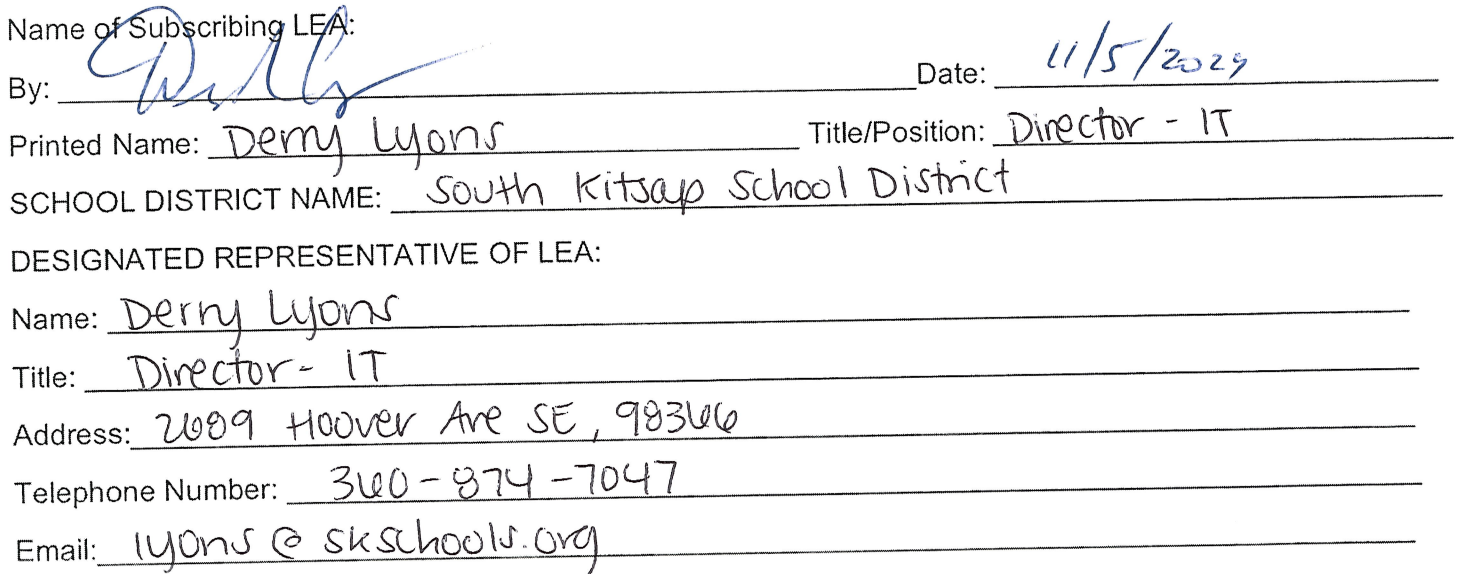 Name of Subscribing LEA:
By: Date: 11/5/2024
Printed Name: Derry Lyons Title/Position: Director - IT
SCHOOL DISTRICT NAME: South Kitsap School District
DESIGNATED REPRESENTATIVE OF LEA:
Name: Derry Lyons
Title: Director - IT
Address: 2689 Hoover Ave SE, 98366
Telephone Number: 360-874-7047
Email: lyons@skschools.org